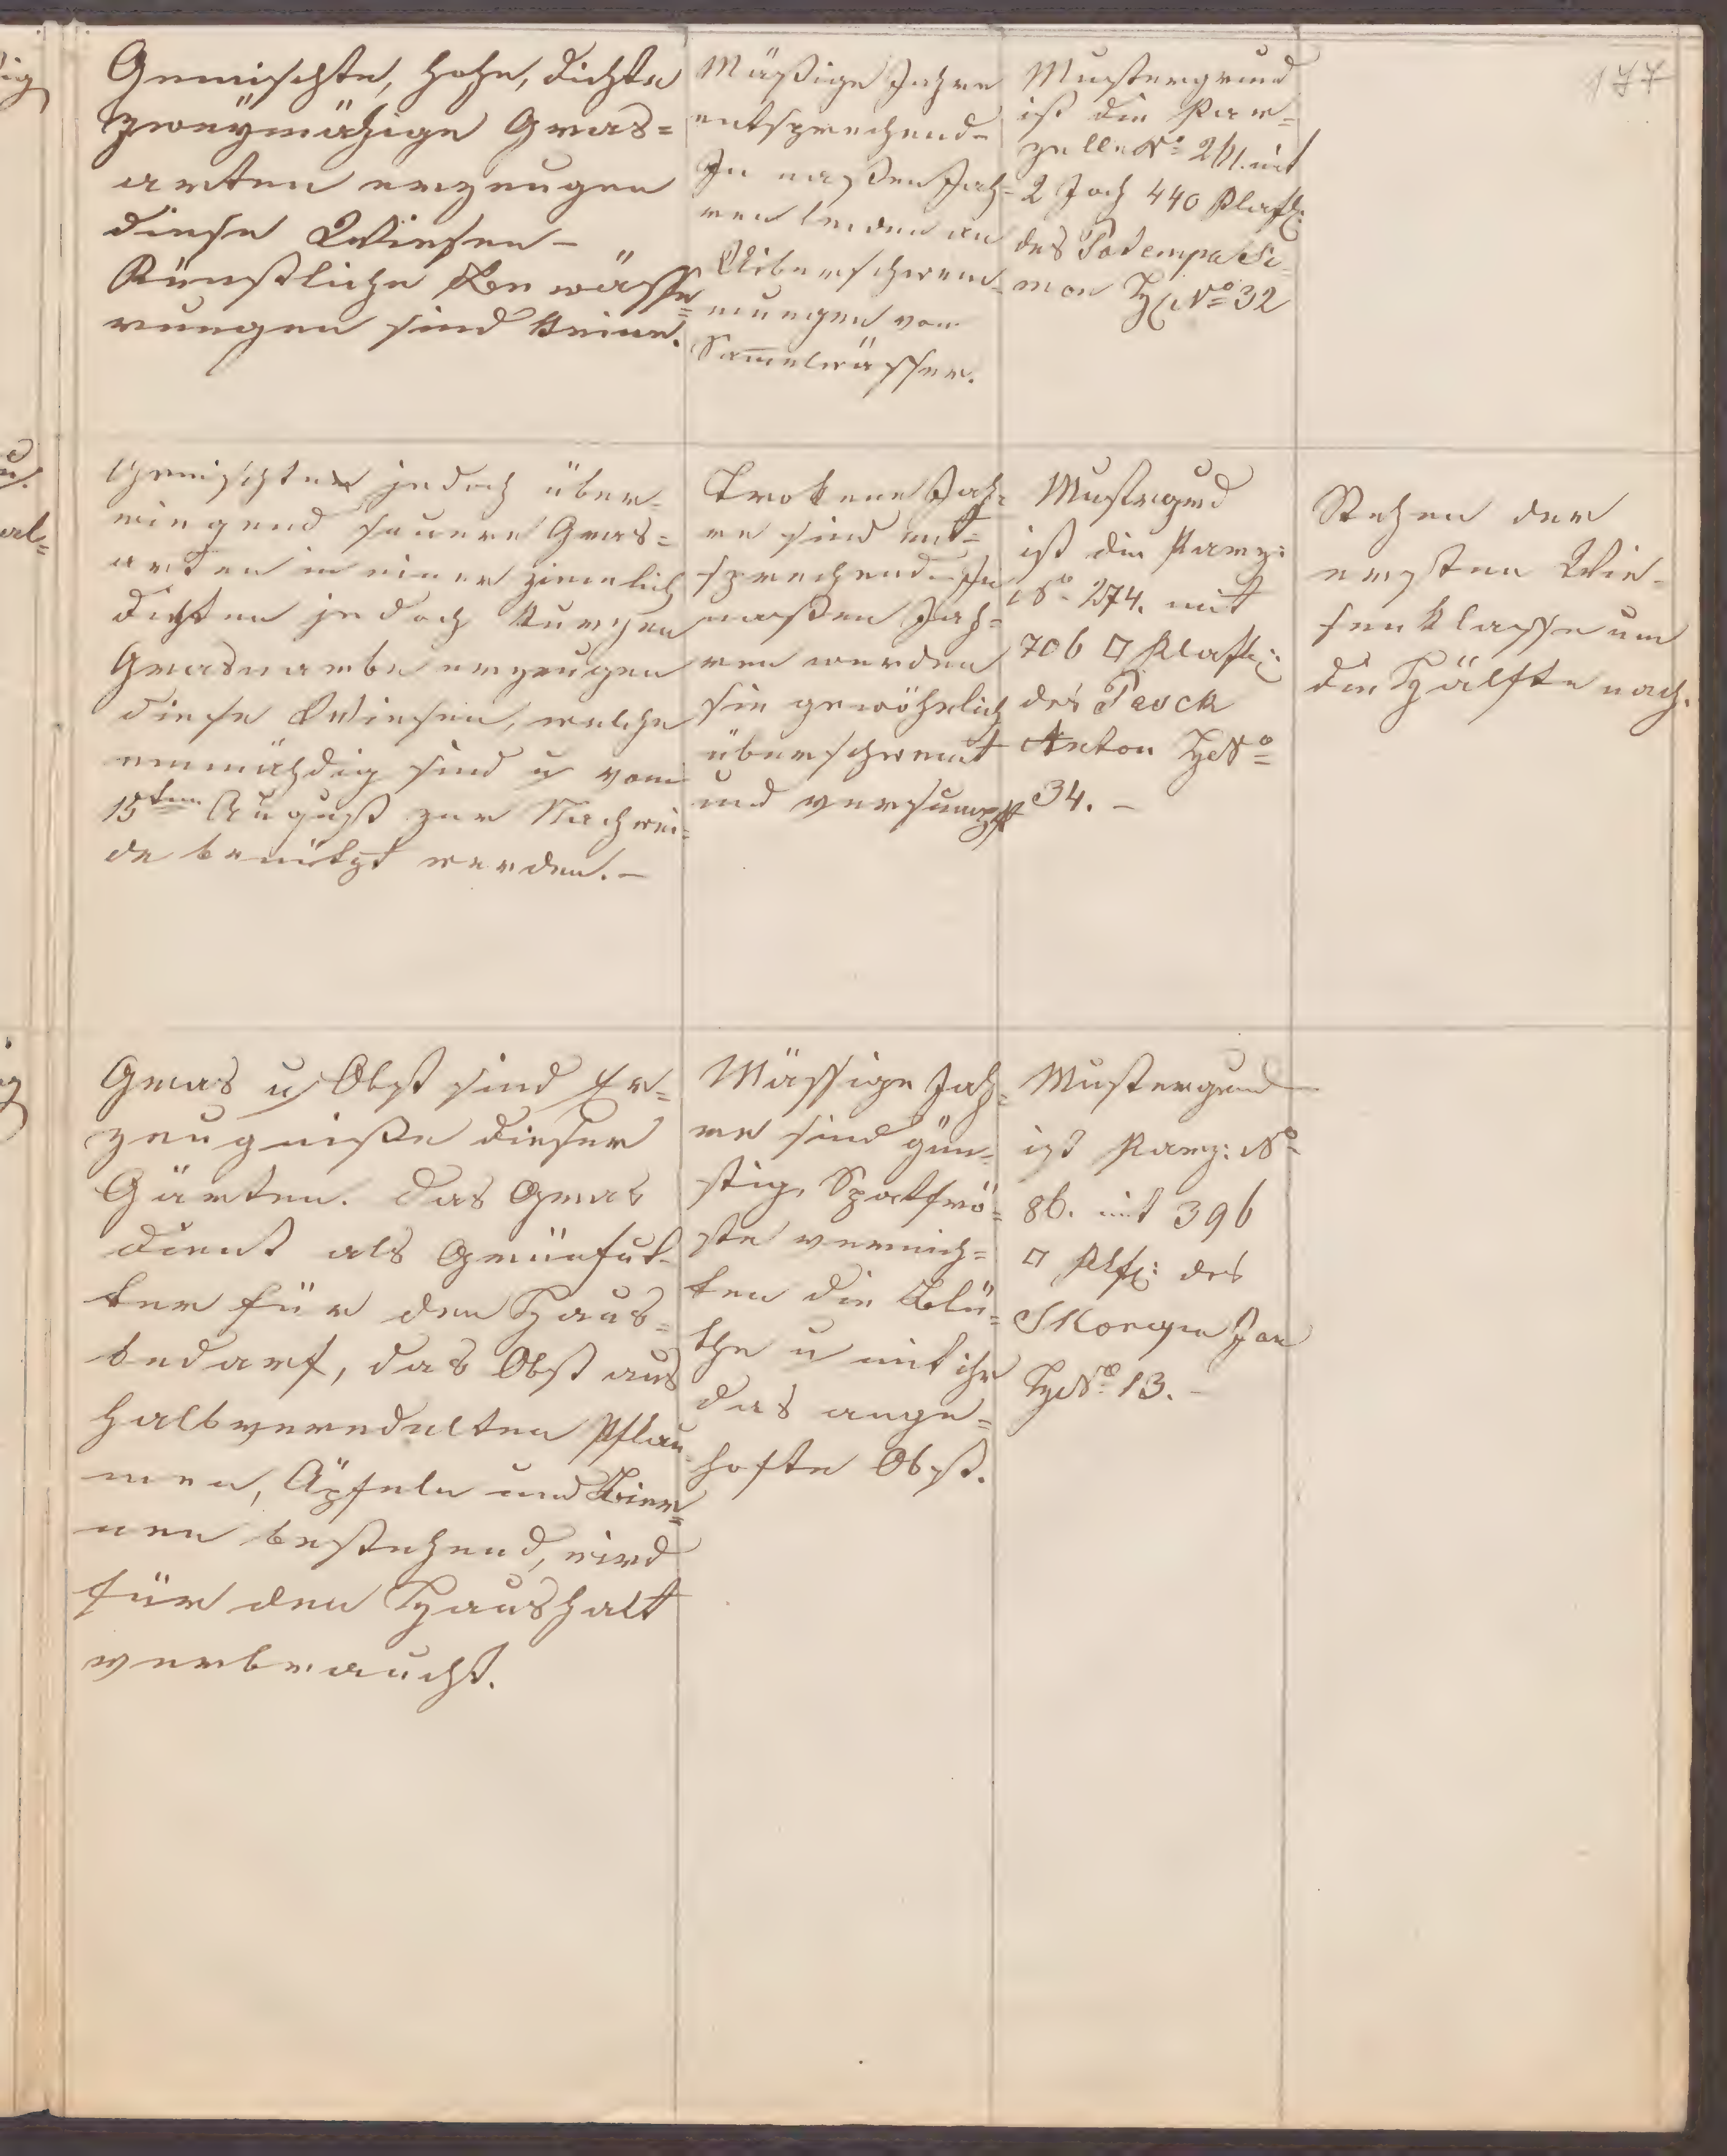 177
Gemischte, hohe, dichte
zweymähige Gras=
arten erzeugen
diese Wiesen –
Künstliche Bewässe=
rungen sind keine.
Mäßige Jahre
entsprechend–
In naßen Jah=
ren leiden an
Uiberschwem=
mungen von
Sam̅elwässer.
Mustergrund
ist die Par=
zelle No mit
2 Joch 440 Klaft:
des Podempa Si=
mon HNo 32
Gemischten jedoch über=
wiegend sauere Gras=
arten in einer ziemlich
dichten jedoch kurzen
Grasnarbe erzeugen
diese Wiesen, welche
einmähdig sind u vom
15ten August zur Nachwei=
de benützt werden. –
Trokene Jah=
re sind ent=
sprechend. In
naßen Jah=
ren werden
sie gewöhnlich
überschwemt
und versumpft
Mustergrd
ist die Parz:
No 274. mit
706 □ Klaft:
des Peock
Anton HNo
34. –
Stehen der
ersten Wie=
senklasse um
die Hälfte nach.
Gras u Obst sind Er=
zeugniße dieser
Gärten. Das Gras
dient als Grünfut=
ter für den Haus=
bedarf, das Obst aus
halbveredelten Pflau=
men, Äpfeln und Bier=
nen bestehend, wird
für den Haushalt
verbraucht.
Mässige Jah=
re sind gün=
stig, Spatfrö=
ste vernich=
ten die Blü=
the u mit ihr
das ange=
hofte Obst.
Mustergrund
ist Parz: No
86. mit 396
□ Klft: des
Jan
HNo 13. –